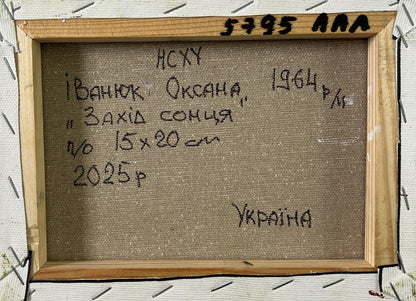 5795 ААЛ
НСХУ
Іванюк Оксана 1964 р/н
„Захід сонця"
п/о 15 х 20 см
2025р
Україна